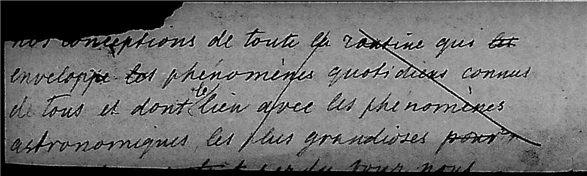 nos conceptions de toute la routine qui
enveloppe les phénomènes quotidiens connus
de tous et dont le lien avec les phénomènes
astronomiques les plus grandioses pour